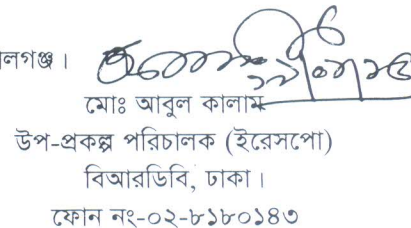 লগঞ্জ।
মোঃ আবুল কালাম
উপ-প্রকল্প পরিচালক (ইরেসপো)
বিআরডিবি, ঢাকা।
ফোন নং-০২-৮১৮০১৪৩